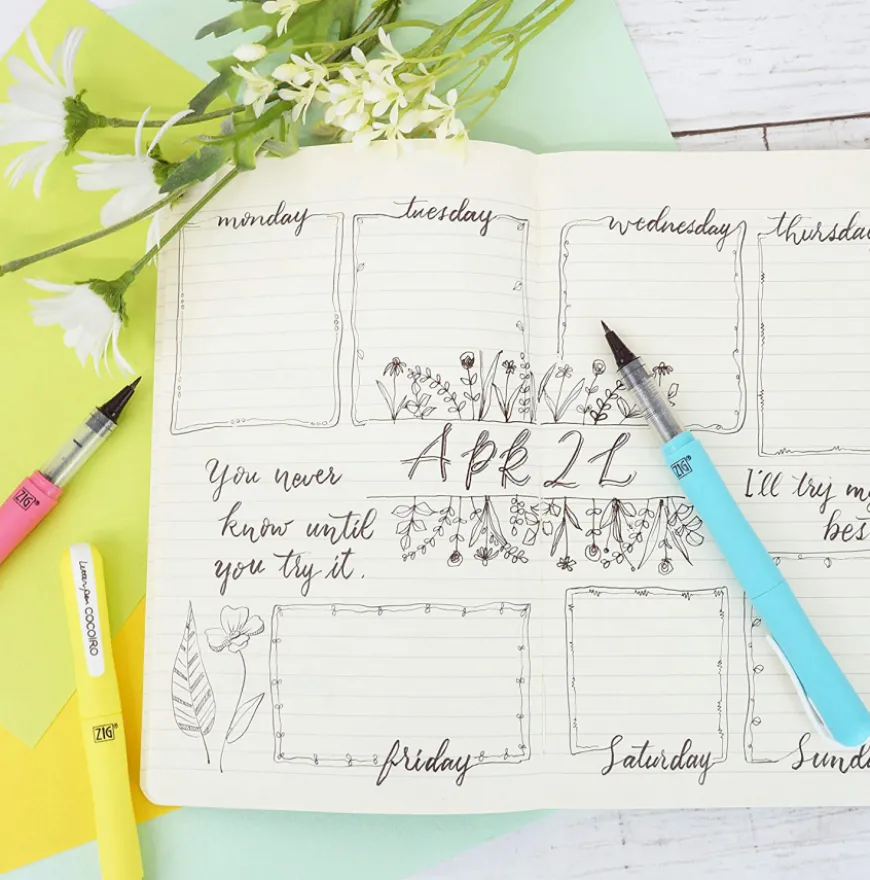 monday
tuesday
wednesday
thursday
APRIL
You never
know until
you try it.
I'll try my
bes
friday
Saturday
Sunda
ZIG
Letter pen COCOIRO
ZIG
ZIG